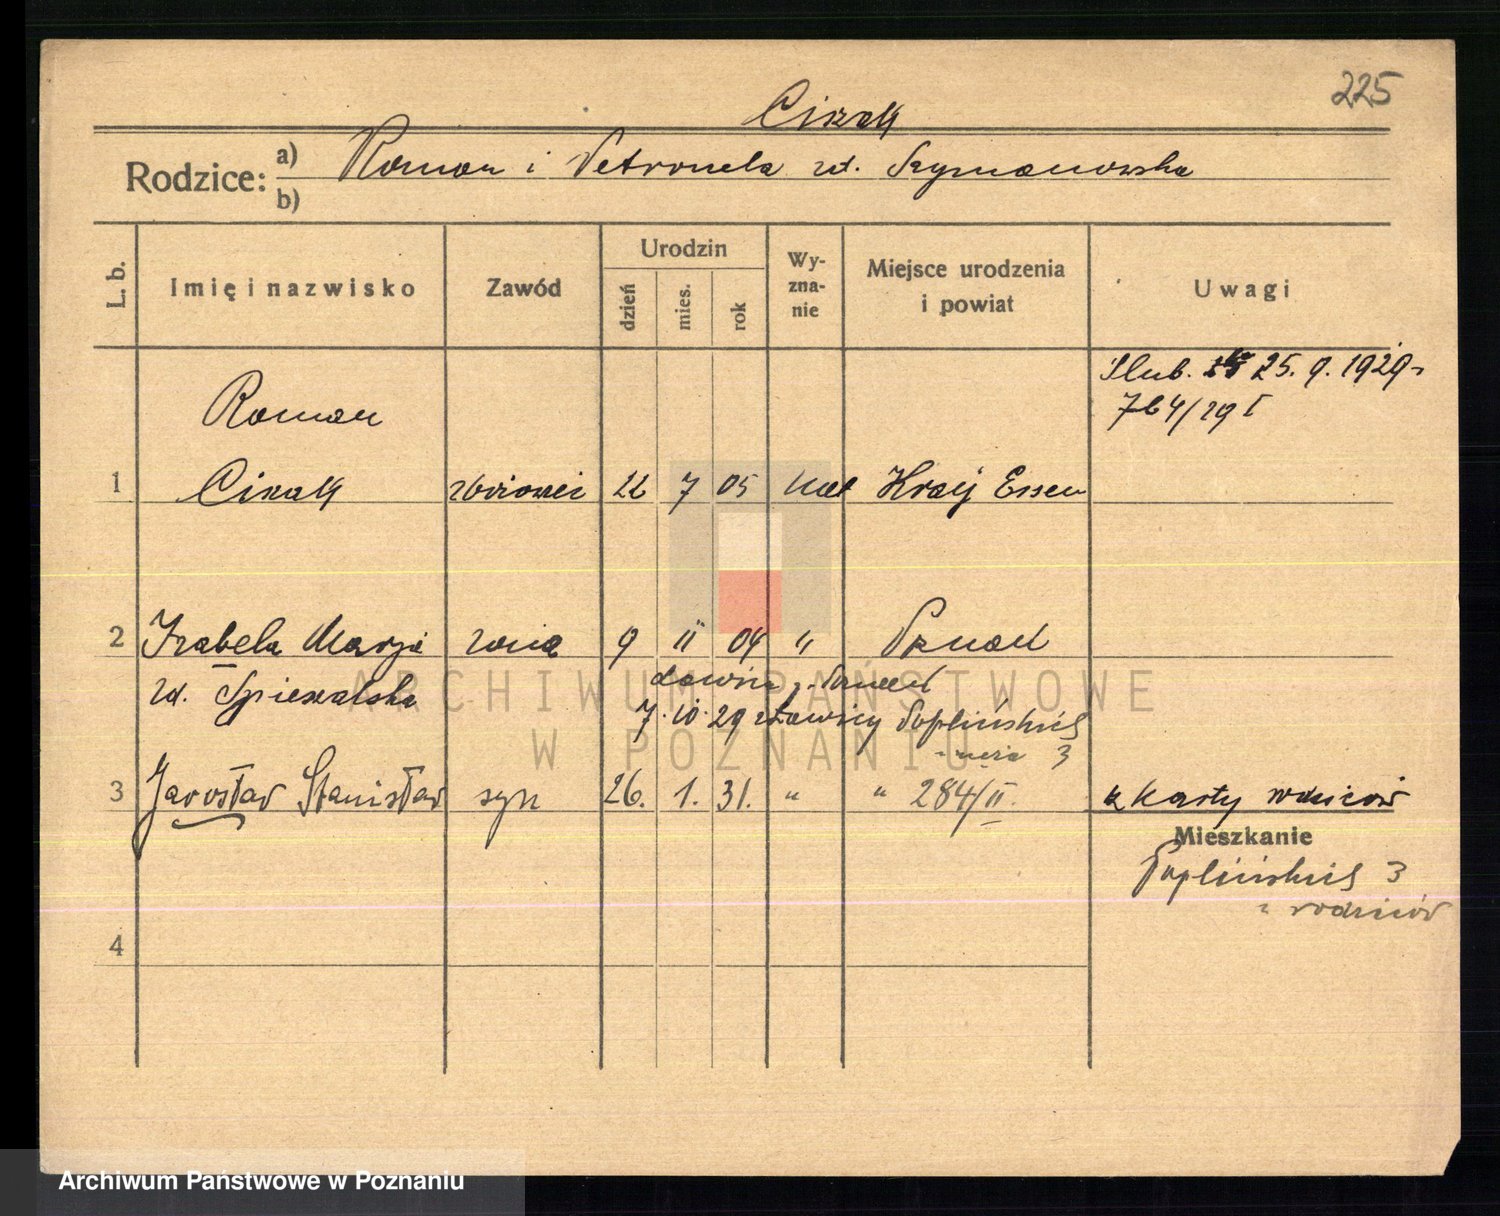 225
Cizak
Rodzice: a) Roman i Petronela zd. Szymanowska
b)
L. b.
Imię i nazwisko
Zawód
Urodzin
dzień
mies.
rok
Wy-
zna-
nie
Miejsce urodzenia
i powiat
Uwagi
Ślub. 25. 9. 1929
764/29 I
Roman
1 Cizak 22 7 05 kat Kray Essen
2 Izabela Marja żona 9 II 04 " Poznań
zd. Śpieralska
7. 10. 29 z Ławicy Poplińskich
3
3 Jarosław Stanisław syn 26. 1. 31. " " 284/II. z karty rodziców
Mieszkanie
Poplińskich 3
rodziców
4
ARCHIWUM PAŃSTWOWE
W POZNANIU
Archiwum Państwowe w Poznaniu